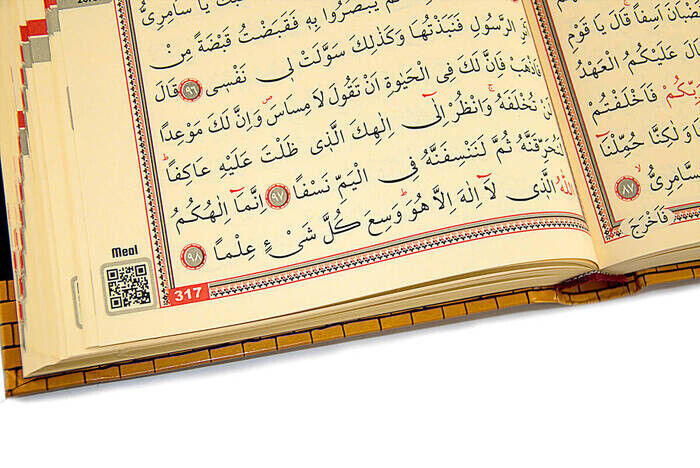 اَسِفًا قَالَ يَا قَوْمِ
عَلَيْكُمُ الْعَهْدُ
رَبِّكُمْ فَاَخْلَفْتُمْ
وَلٰكِنَّا حُمِّلْنَٓا
السَّامِرِيُّ ﴿٨٧﴾
فَاَخْرَجَ
يَا سَامِرِيُّ
يَبْصُرُوا بِهٖ فَقَبَضْتُ قَبْضَةً مِنْ
الرَّسُولِ فَنَبَذْتُهَا وَكَذٰلِكَ سَوَّلَتْ لٖى نَفْسٖى ﴿٩٦﴾ قَالَ
فَاذْهَبْ فَاِنَّ لَكَ فِى الْحَيٰوةِ اَنْ تَقُولَ لَا مِسَاسَ وَاِنَّ لَكَ مَوْعِدًا
تُخْلَفَهُ وَانْظُرْ اِلٰٓى اِلٰهِكَ الَّذٖى ظَلْتَ عَلَيْهِ عَاكِفًا
لَنُحَرِّقَنَّهُ ثُمَّ لَنَنْسِفَنَّهُ فِى الْيَمِّ نَسْفًا ﴿٩٧﴾ اِنَّمَٓا اِلٰهُكُمُ
اللّٰهُ الَّذٖى لَٓا اِلٰهَ اِلَّا هُوَ وَسِعَ كُلَّ شَىْءٍ عِلْمًا ﴿٩٨﴾
Meal
317